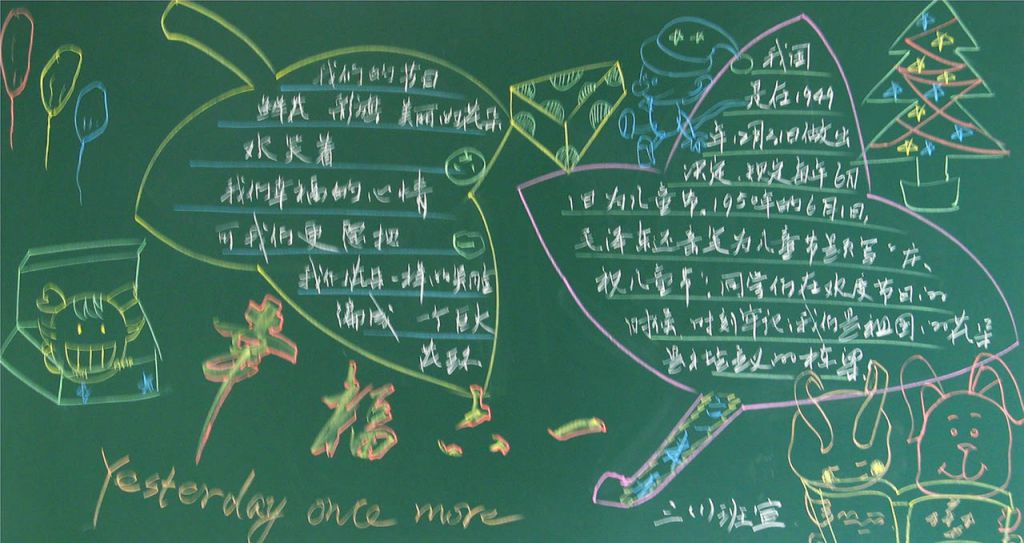 我们的节日
鲜花 美丽的花朵
欢笑着
我们幸福的心情
可我们更愿把
我们花朵一样的
编成 一个巨大
花环
我国
是在1949
年12月 日做出
决定、规定每年6月
1日为儿童节。1950年的6月1日,
毛泽东还亲笔为儿童节题写“庆
祝儿童节”;同学们在欢度节日的
时候 时刻牢记:我们是祖国的花朵
是 主义的栋梁
幸福
Yesterday once more
三(1)班宣